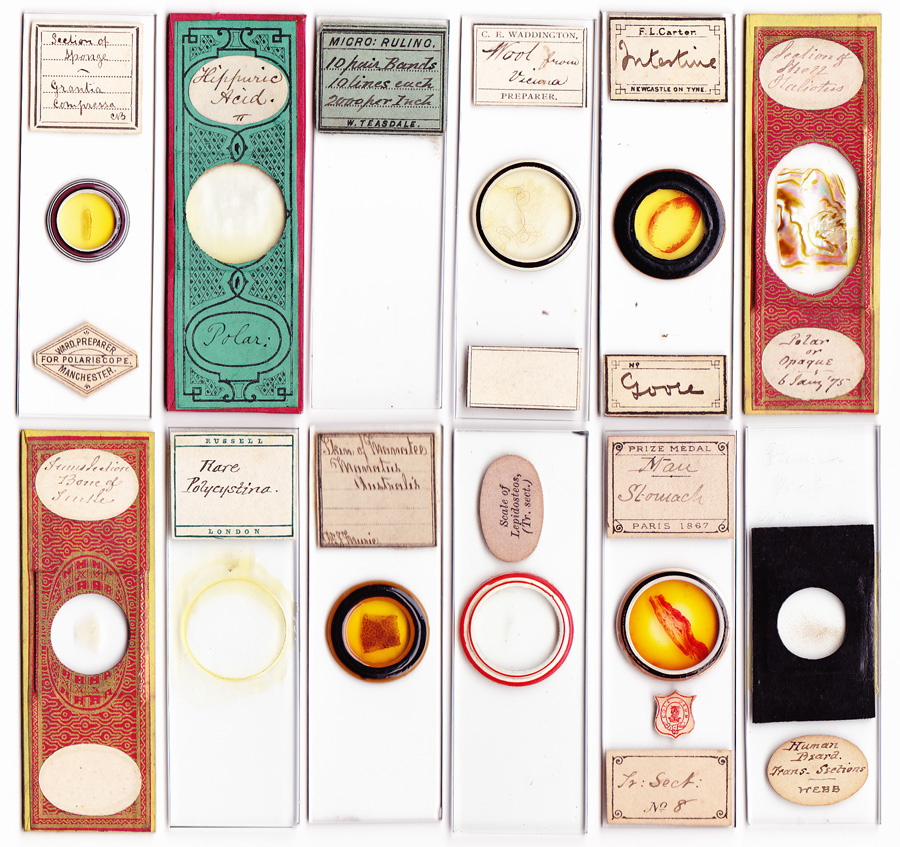 Section of
Sponge
Grantia
Compressa
CNB
WARD, PREPARER
FOR POLARISCOPE,
MANCHESTER.
Hippuric
Acid.
π
Polar:
MICRO: RULING.
10 hair Bands
10 lines each
2000 per Inch
W. TEASDALE.
C. E. WADDINGTON,
Wool from
Vicuna
PREPARER.
F.L. Carter.
Intestine
NEWCASTLE ON TYNE.
No
Goose
Section of
Shell
Haliotis
Polar
or
Opaque
6 Jany '75
Transection
Bone of
Turtle
RUSSELL
Rare
Polycystina.
LONDON
Skin of Manatee
Manatus
Scale of
Lepidosteos,
(Tr. sect.)
PRIZE MEDAL
Man
Stomach
PARIS 1867
Tr: Sect:
No 8
Human
Beard.
Trans-Sections
WEBB